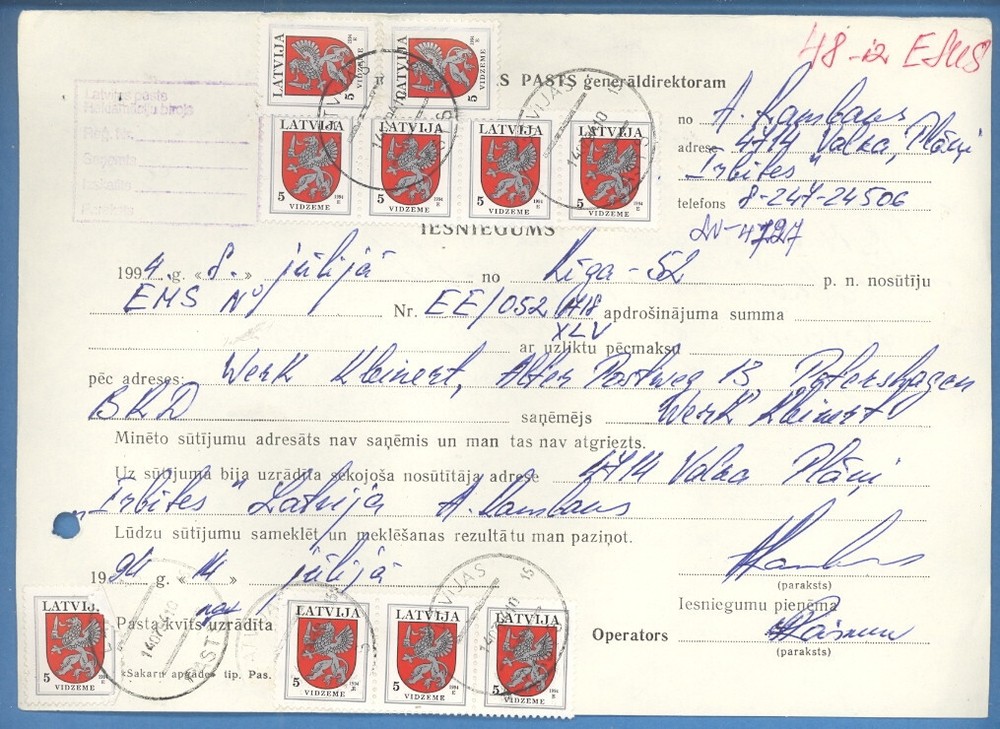 48-iz EMS
LATVIJA 5 VIDZEME 1994 E
LATVIJA 5 VIDZEME 1994 E
S PASTS ģenerāldirektoram
Latvijas pasts
Reģ.
no A.
adrese 4714 Valka, Plāņi
"Irbītes"
LATVIJA LATVIJA LATVIJA LATVIJA
5 1994 E 5 1994 E 5 1994 E 5 1994 E
VIDZEME VIDZEME VIDZEME VIDZEME
telefons 8-247-24506
IESNIEGUMS
AN-4727
1994. g. «8.» jūlijā no Rīga-52 p. n. nosūtīju
EMS Nr. EE/052 718 apdrošinājuma summa
XLV
ar uzliktu pēcmaksu
pēc adreses: Werk Kleinert, Alter Postweg 13 Petershagen
BRD saņēmējs Werk Kleinert
Minēto sūtījumu adresāts nav saņēmis un man tas nav atgriezts.
Uz sūtījuma bija uzrādīta sekojoša nosūtītāja adrese 4714 Valka Plāņi
"Irbītes" Latvija A.
Lūdzu sūtījumu sameklēt un meklēšanas rezultātu man paziņot.
1994 g. «14» jūlijā
(paraksts)
Iesniegumu pieņēma
Pasta kvīts uzrādīta
Operators
(paraksts)
«Sakaru apgāde» tip. Pas.
LATVIJA LATVIJA LATVIJA LATVIJA
5 1994 E 5 1994 E 5 1994 E 5 1994 E
VIDZEME VIDZEME VIDZEME VIDZEME